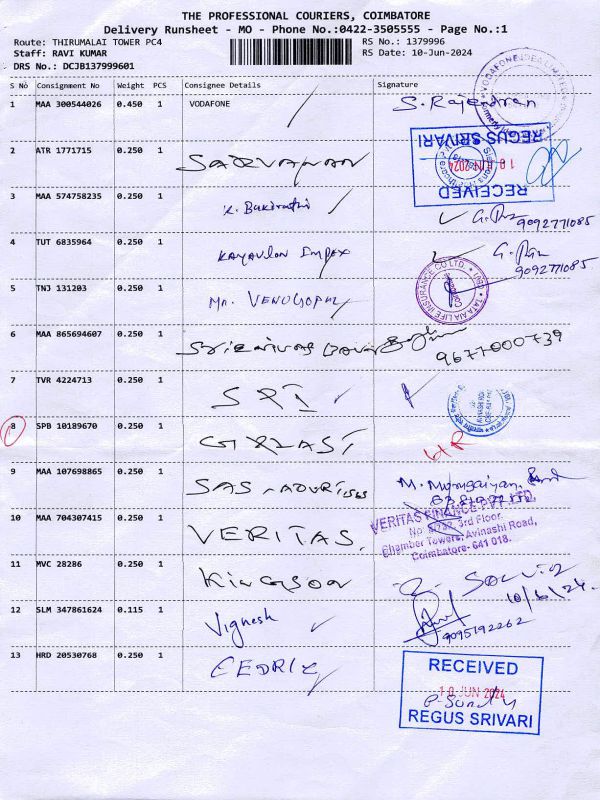 THE PROFESSIONAL COURIERS, COIMBATORE
Delivery Runsheet - MO - Phone No.:0422-3505555 - Page No.:1
Route: THIRUMALAI TOWER PC4
RS No.: 1379996
Staff: RAVI KUMAR
RS Date: 10-Jun-2024
DRS No.: DCJB137999601
S No Consignment No Weight PCS Consignee Details Signature
1 MAA 300544026 0.450 1 VODAFONE S. Rajendran
REGUS SRIVARI
2 ATR 1771715 0.250 1 SARVANAN
10 JUN 2024
RECEIVED
3 MAA 574758235 0.250 1
9092771085
4 TUT 6835964 0.250 1 IMPEX
9092771085
5 TNJ 131203 0.250 1 Mr. VENUGOPAL
TATA AIA LIFE INSURANCE CO LTD.
6 MAA 865694607 0.250 1
9677000739
7 TVR 4224713 0.250 1 SRI
8 SPB 10189670 0.250 1
9 MAA 107698865 0.250 1 SAS
M. Murugaiyan
10 MAA 704307415 0.250 1 VERITAS
VERITAS FINANCE PVT. LTD.
3rd Floor,
Chamber Towers, Avinashi Road,
Coimbatore- 641 018.
11 MVC 28286 0.250 1 Kingson
10/6/24
12 SLM 347861624 0.115 1 Vignesh
9095192262
13 HRD 20530768 0.250 1 CEDRIC
RECEIVED
10 JUN 2024
REGUS SRIVARI